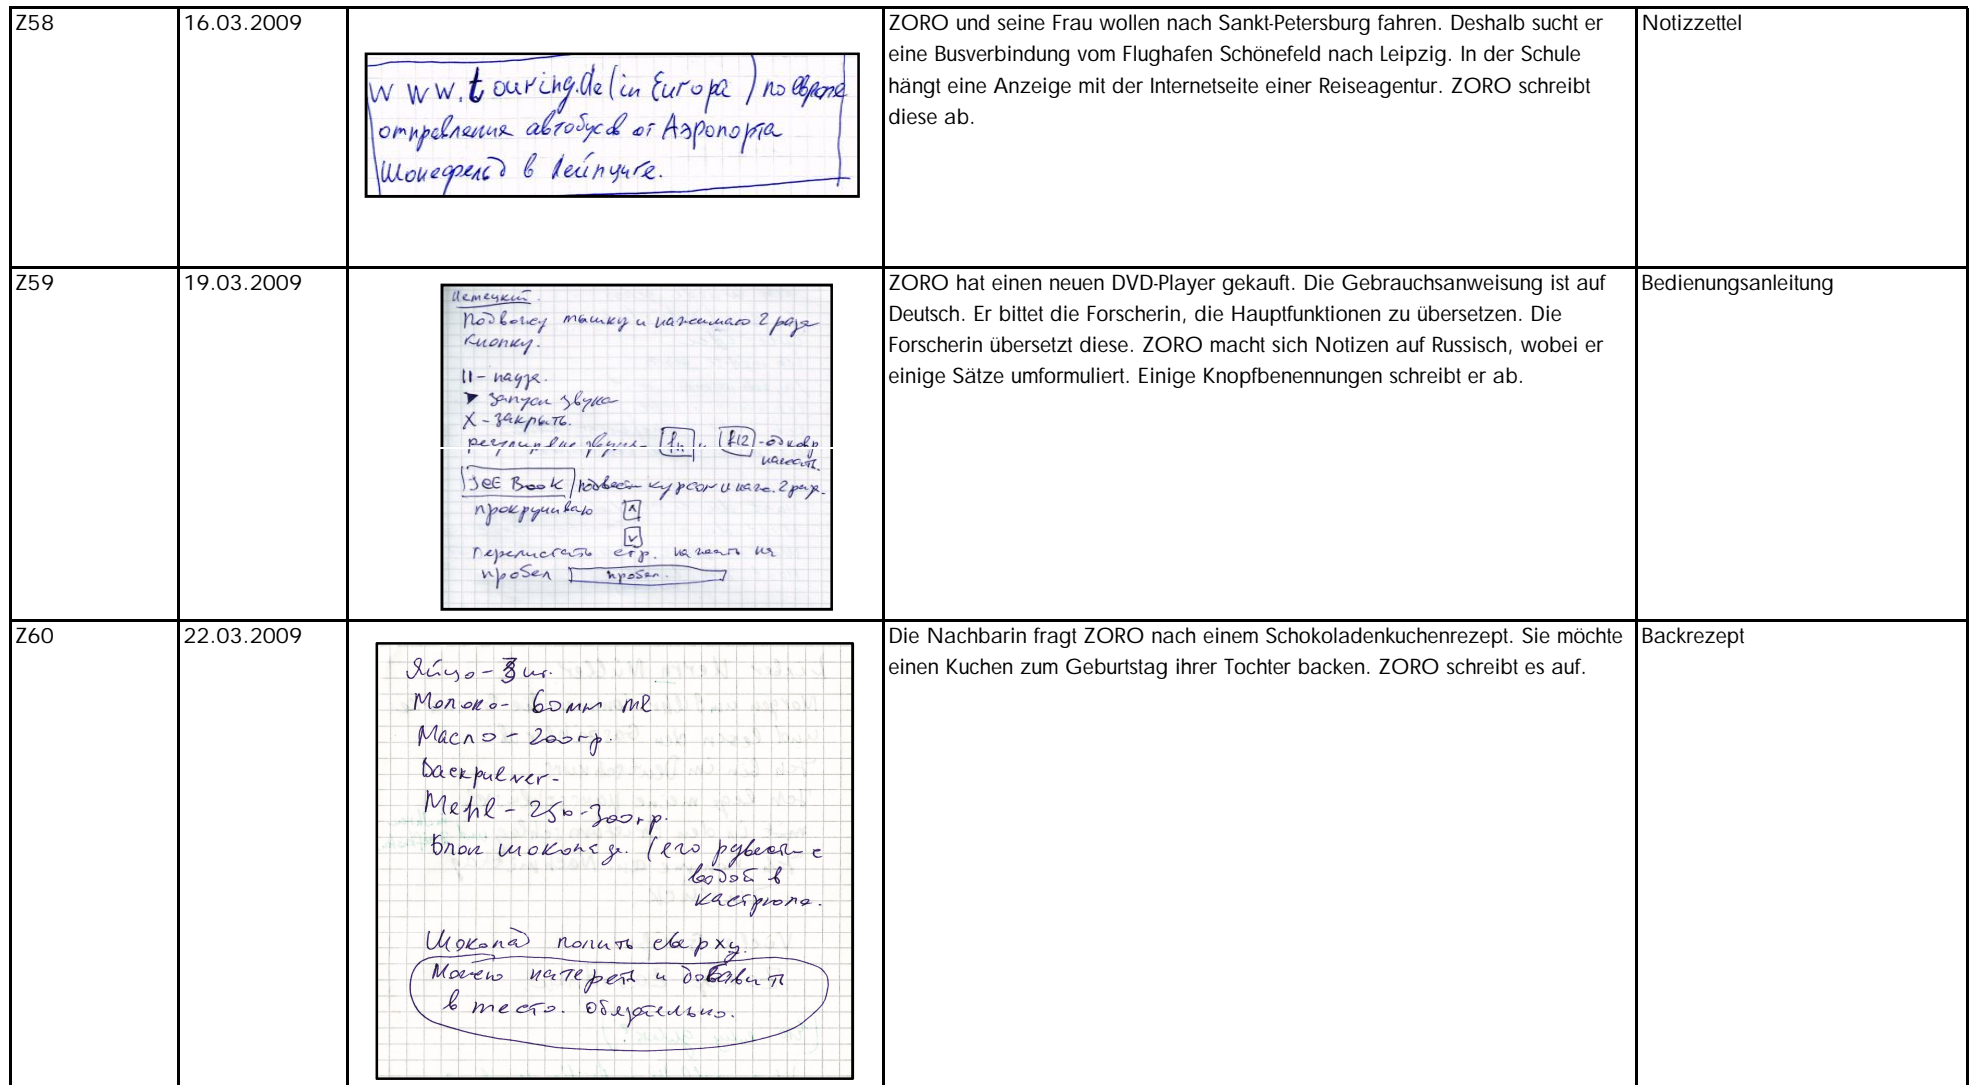 Z58
16.03.2009
www.touring.de (in Europa) по европе
отправления автобусов от Аэропорта
Шонефельд в Лейпциге.
ZORO und seine Frau wollen nach Sankt-Petersburg fahren. Deshalb sucht er
eine Busverbindung vom Flughafen Schönefeld nach Leipzig. In der Schule
hängt eine Anzeige mit der Internetseite einer Reiseagentur. ZORO schreibt
diese ab.
Notizzettel
Z59
19.03.2009
Немецкий.
Подвожу мышку и нажимаю 2 раза
кнопку.
II - пауза.
▶ запуск звука
X - закрыть.
звука - fn и f12 -
нажать.
See Book подвести курсор и наж. 2 раз.
прокручиваю ^
v
перелистать стр. нажать на
пробел пробел.
ZORO hat einen neuen DVD-Player gekauft. Die Gebrauchsanweisung ist auf
Deutsch. Er bittet die Forscherin, die Hauptfunktionen zu übersetzen. Die
Forscherin übersetzt diese. ZORO macht sich Notizen auf Russisch, wobei er
einige Sätze umformuliert. Einige Knopfbenennungen schreibt er ab.
Bedienungsanleitung
Z60
22.03.2009
Яйцо - 3 шт.
Молоко - 60 мм ml
Масло - 200 гр.
Backpulver -
Mehl - 250-300 гр.
Блок шоколад. (его с
водой в
кастрюле.
Шоколад полить сверху.
Можно натереть и добавить
в тесто. обязательно.
Die Nachbarin fragt ZORO nach einem Schokoladenkuchenrezept. Sie möchte
einen Kuchen zum Geburtstag ihrer Tochter backen. ZORO schreibt es auf.
Backrezept